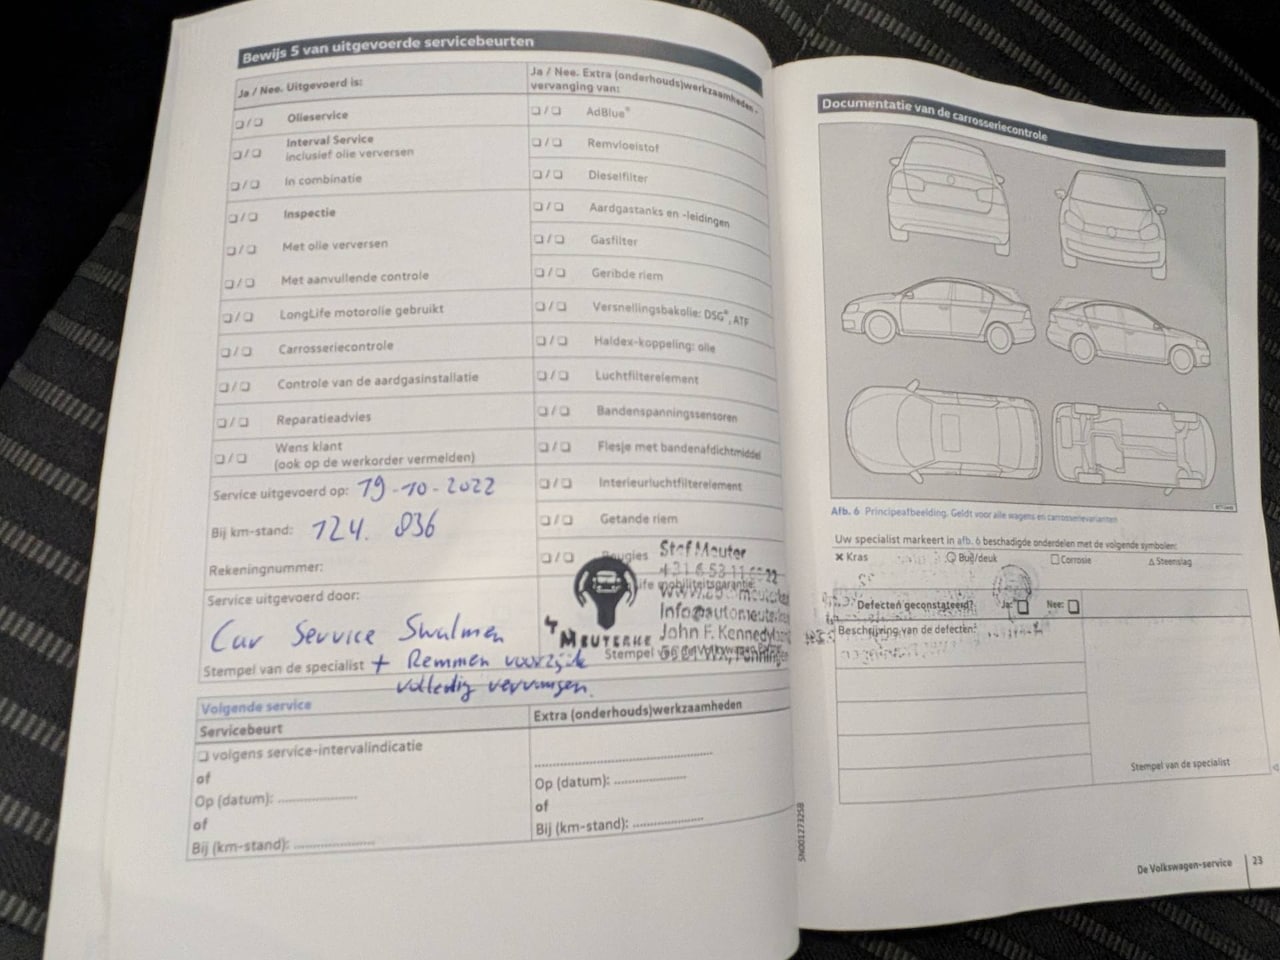 Bewijs 5 van uitgevoerde servicebeurten
Ja / Nee. Uitgevoerd is:
Olieservice
Interval Service
inclusief olie verversen
In combinatie
Inspectie
Met olie verversen
Met aanvullende controle
LongLife motorolie gebruikt
Carrosseriecontrole
Controle van de aardgasinstallatie
Reparatieadvies
Wens klant
(ook op de werkorder vermelden)
Service uitgevoerd op: 19-10-2022
Bij km-stand: 124.036
Rekeningnummer:
Service uitgevoerd door:
Car Service Swalmen
Stempel van de specialist + Remmen voorzijde
volledig vervangen.
Ja / Nee. Extra (onderhouds)werkzaamheden -
vervanging van:
AdBlue®
Remvloeistof
Dieselfilter
Aardgastanks en -leidingen
Gasfilter
Geribde riem
Versnellingsbakolie: DSG®, ATF
Haldex-koppeling: olie
Luchtfilterelement
Bandenspanningssensoren
Flesje met bandenafdichtmiddel
Interieurluchtfilterelement
Getande riem
Bougies
mobiliteitsgarantie
Stef Meuter
John F. Kennedy
Stempel
Volgende service
Servicebeurt
volgens service-intervalindicatie
of
Op (datum): ....................
of
Bij (km-stand): ....................
Extra (onderhouds)werkzaamheden
Op (datum): ....................
of
Bij (km-stand): ....................
5N0012732SB
Documentatie van de carrosseriecontrole
Afb. 6 Principeafbeelding. Geldt voor alle wagens en carrosserievarianten
Uw specialist markeert in afb. 6 beschadigde onderdelen met de volgende symbolen:
× Kras
Buil/deuk
Corrosie
Steenslag
Defecten geconstateerd? Ja: Nee:
Beschrijving van de defecten:
Stempel van de specialist
De Volkswagen-service 23